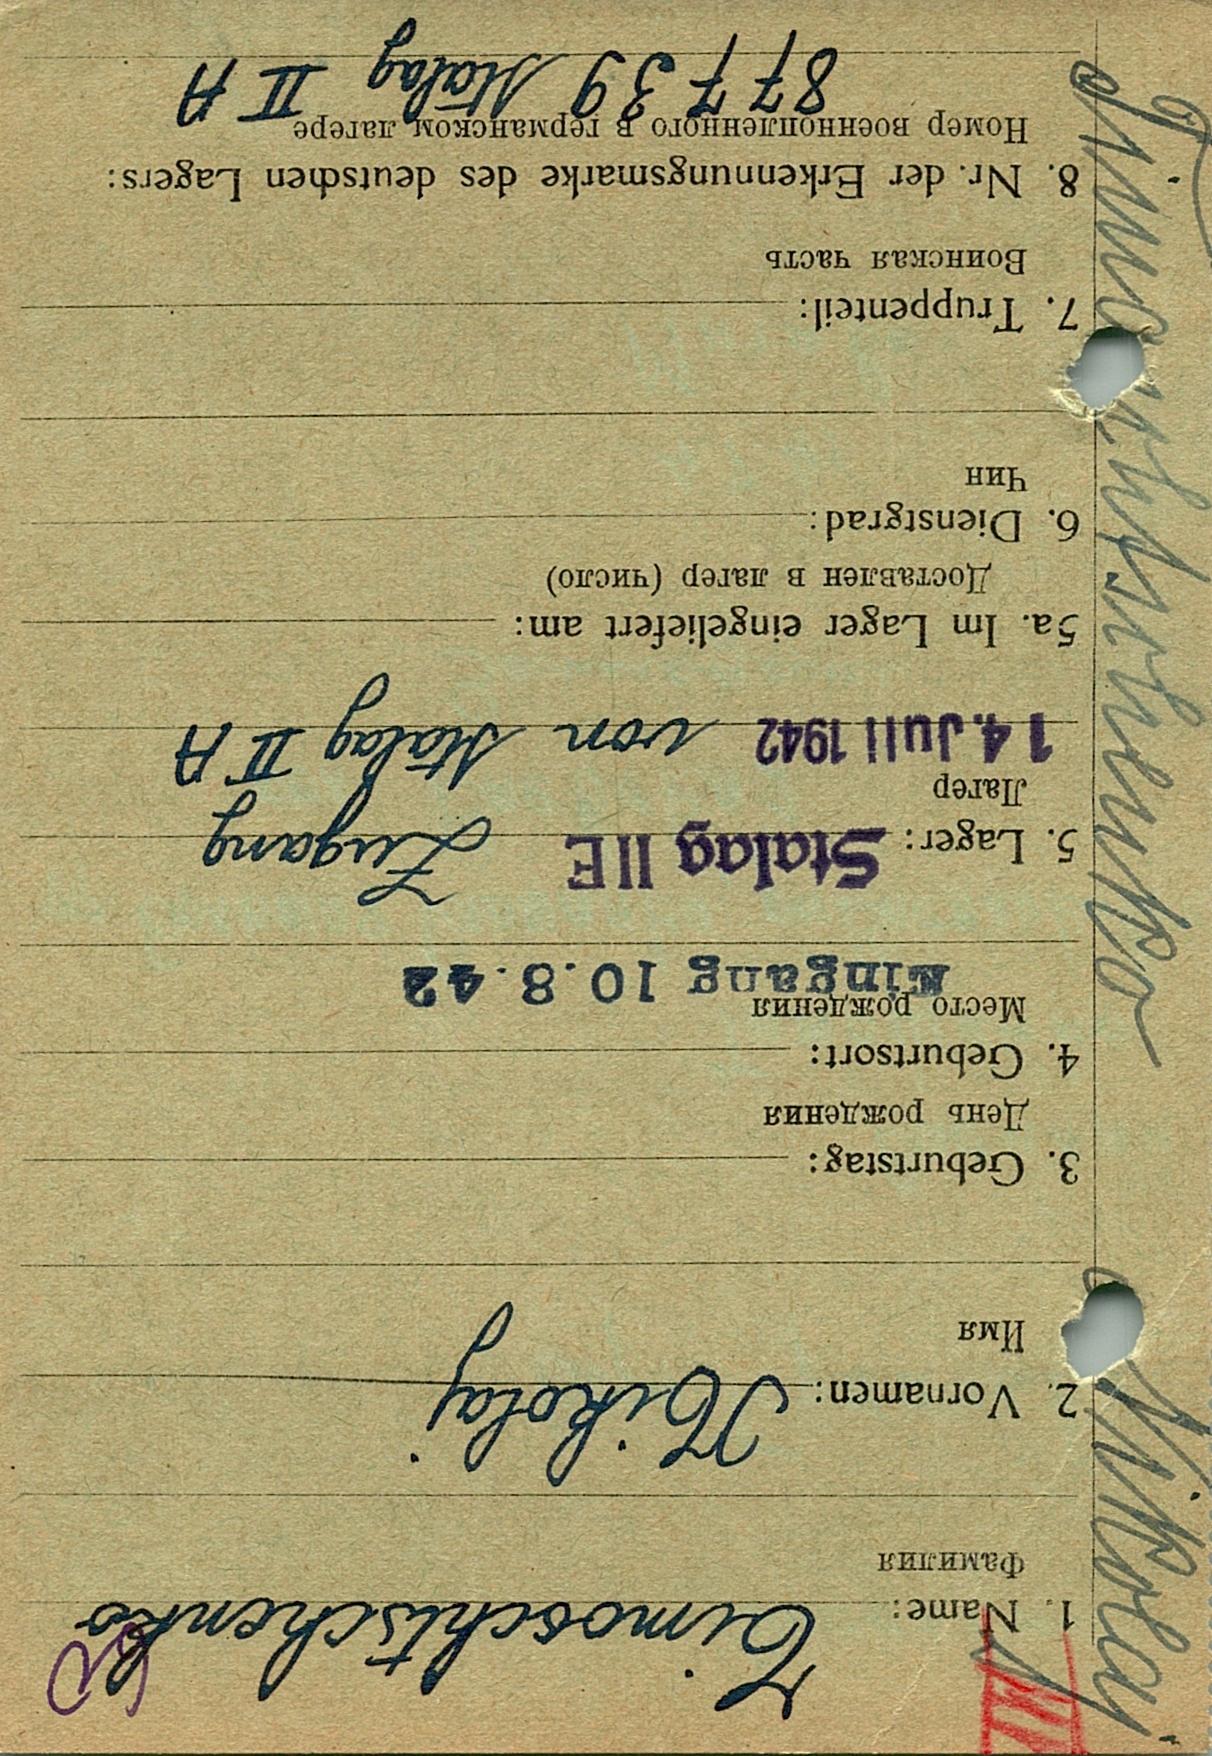 III
1. Name: Timoschtschenko
Фамилия
2. Vornamen: Nikolaj
Имя
3. Geburtstag:
День рождения
4. Geburtsort:
Место рождения
Eingang 10.8.42
5. Lager: Stalag II E Zugang
Лагер
14. Juli 1942 von Stalag II A
5a. Im Lager eingeliefert am:
Доставлен в лагер (число)
6. Dienstgrad:
Чин
7. Truppenteil:
Воинская часть
8. Nr. der Erkennungsmarke des deutschen Lagers:
Номер военнопленного в германском лагере
87739 Stalag II A
Timoschtschenko Nikolaj